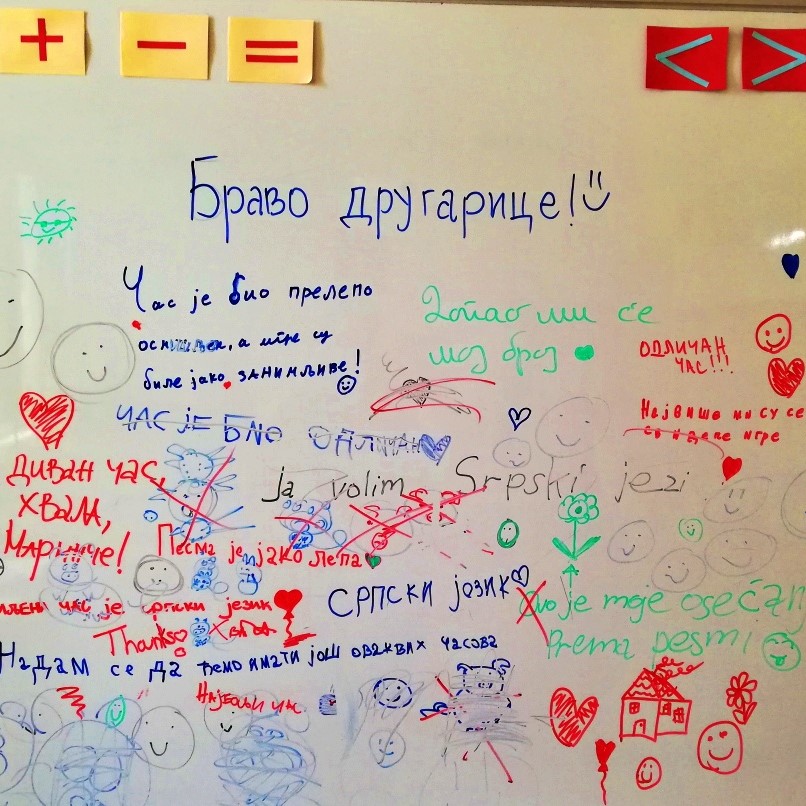 + − = < >
Браво другарице!
Час је био прелепо
а игре су
биле јако занимљиве!
Допао ми се
мој број
ОДЛИЧАН
ЧАС!!!
Највише ми су се
игре
ЧАС ЈЕ БИО ОДЛИЧАН
ДИВАН ЧАС,
ХВАЛА,
Ja volim Srpski jezi
Песма је јако лепа
час је српски језик
СРПСКИ ЈЕЗИК
Ovo je moje osećanj
Prema pesmi
Thanks
Надам се да ћемо имати још оваквих часова
Најбољи час